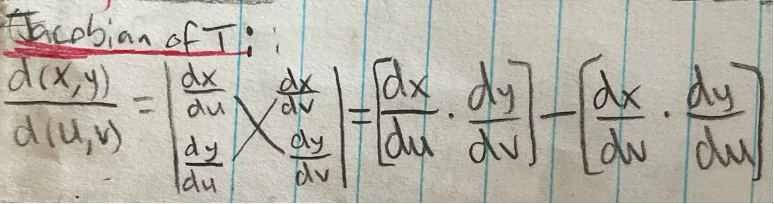 Jacobian of T:
d(x,y)/d(u,v) = | dx/du dx/dv ; dy/du dy/dv | = [dx/du · dy/dv] - [dx/dv · dy/du]